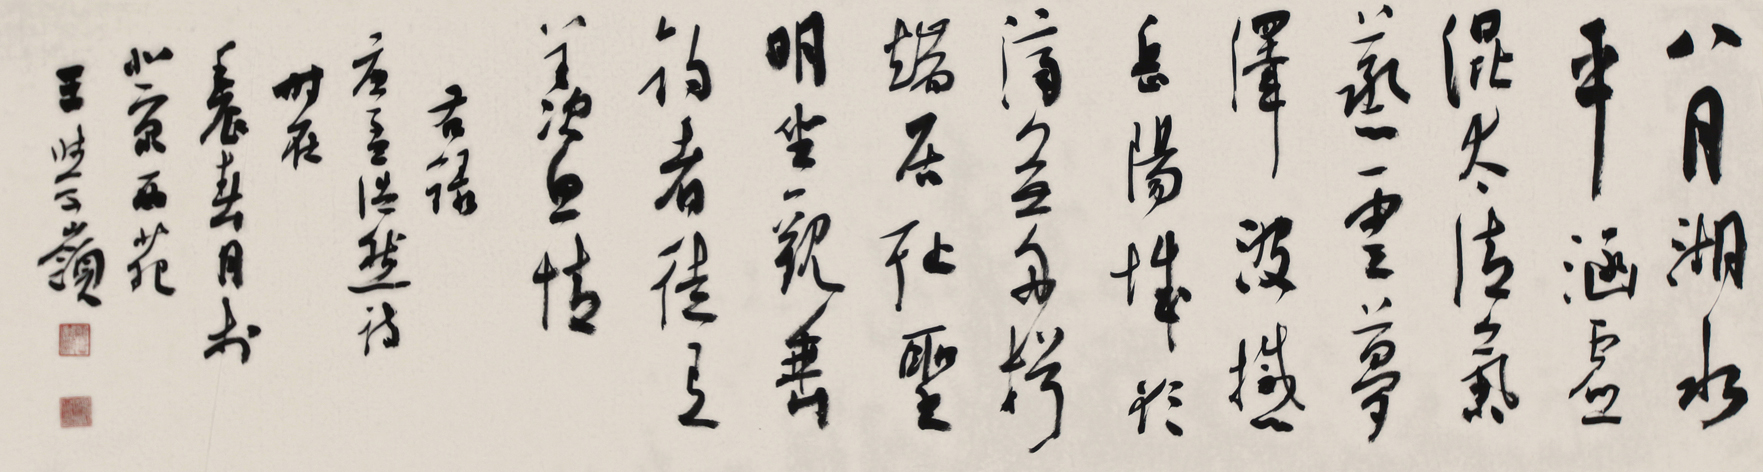 八月湖水
平涵虛
混太清氣
蒸雲夢
澤波撼
岳陽城欲
濟無舟楫
端居耻聖
明坐觀垂
釣者徒有
羨魚情
右録
唐孟浩然詩
时在
壬辰春月於
北京西苑
王學嶺